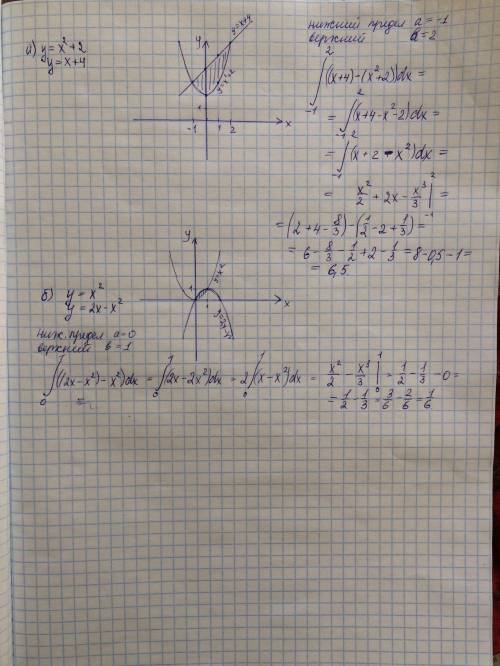 а) y = x² + 2
y = x + 4
нижний предел a = -1
верхний b = 2
y
y=x+4
y=x²+2
1
-1 1 2 x
2
∫((x+4)-(x²+2))dx =
-1
2
= ∫(x+4-x²-2)dx =
-1
2
= ∫(x+2-x²)dx =
-1
= x²/2 + 2x - x³/3 |²₋₁ =
= (2+4-8/3)-(1/2-2+1/3) =
= 6 - 8/3 - 1/2 + 2 - 1/3 = 8-0,5-1 =
= 6,5.
б) y = x²
y = 2x - x²
y
y=x²
1
1 x
y=2x-x²
ниж. предел a=0
верхний b = 1
1 1 1
∫((2x-x²)-x²)dx = ∫(2x-2x²)dx = 2∫(x-x²)dx = x²/2 - x³/3 |¹₀ = 1/2 - 1/3 - 0 =
0 0 0
=
= 1/2 - 1/3 = 3/6 - 2/6 = 1/6